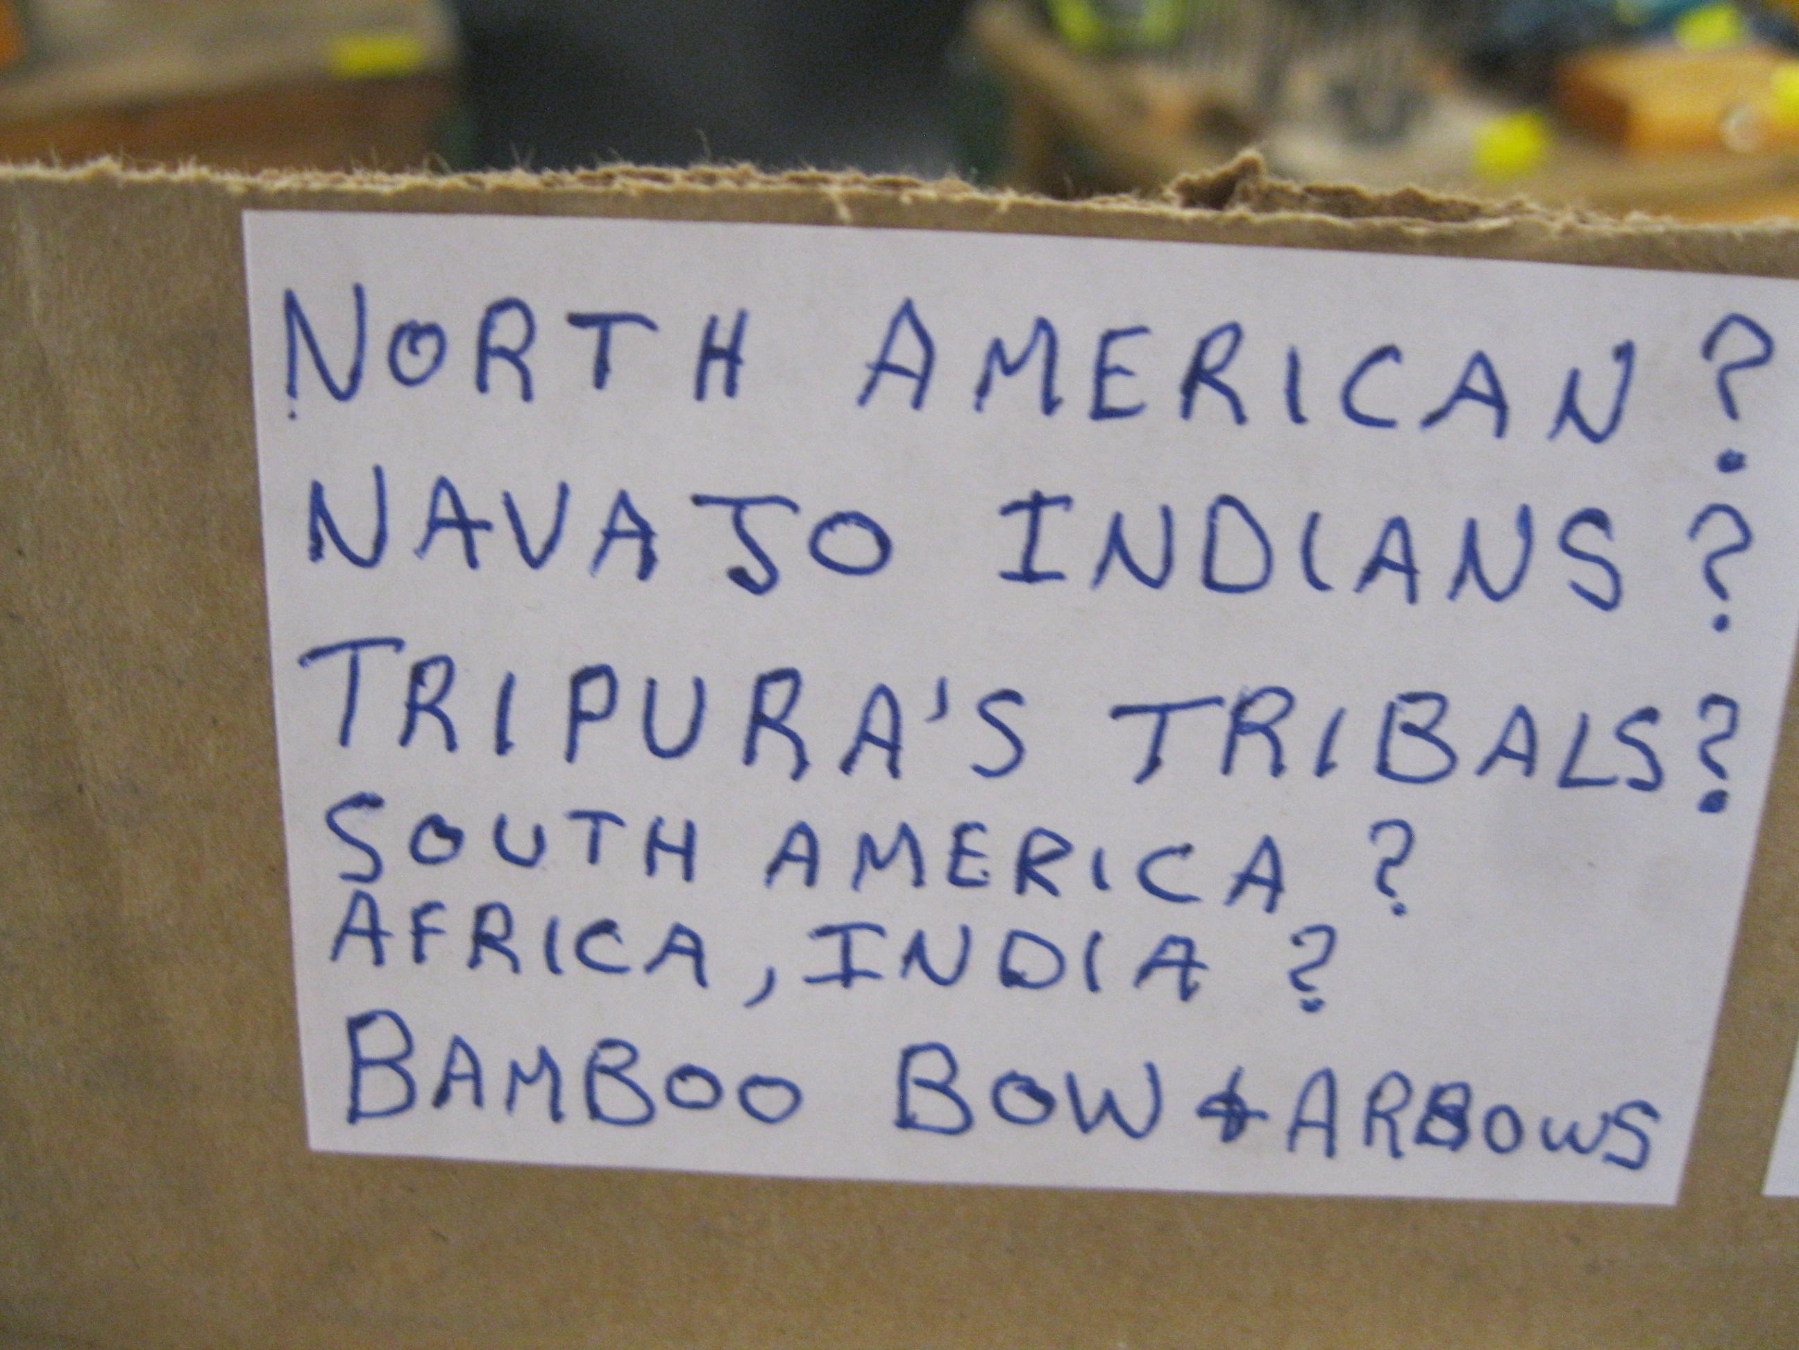 NORTH AMERICAN?
NAVAJO INDIANS?
TRIPURA'S TRIBALS?
SOUTH AMERICA ?
AFRICA, INDIA ?
BAMBOO BOW & ARROWS